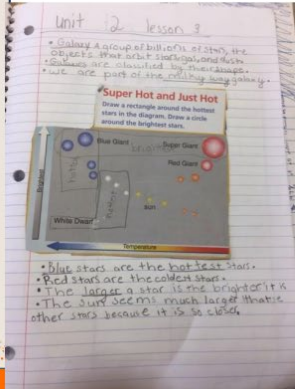 unit 2 lesson 3
• Galaxy a group of billions of stars, the
objects that orbit stars, gas, and dust.
• Galaxies are classified by their shape.
• We are part of the milky way galaxy.
Super Hot and Just Hot
Draw a rectangle around the hottest
stars in the diagram. Draw a circle
around the brightest stars.
Blue Giant
Super Giant
Red Giant
Brighter
White Dwarf
sun
Temperature
• Blue stars are the hottest stars.
• Red stars are the coldest stars.
• The larger a star is the brighter it is
• The sun seems much larger than
other stars because it is so closer.